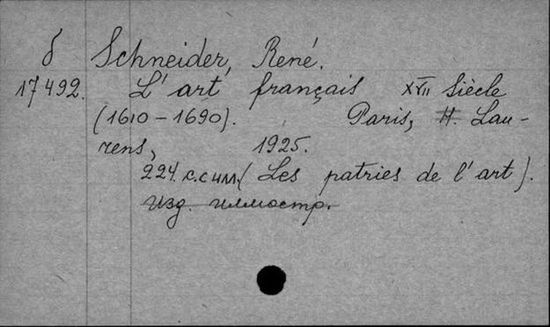 б Schneider, René.
17492. L'art français XVII siècle
(1610-1690). Paris, H. Lau-
rens, 1925.
224 с. с илл. (Les patries de l'art).
изд. иллюстр.